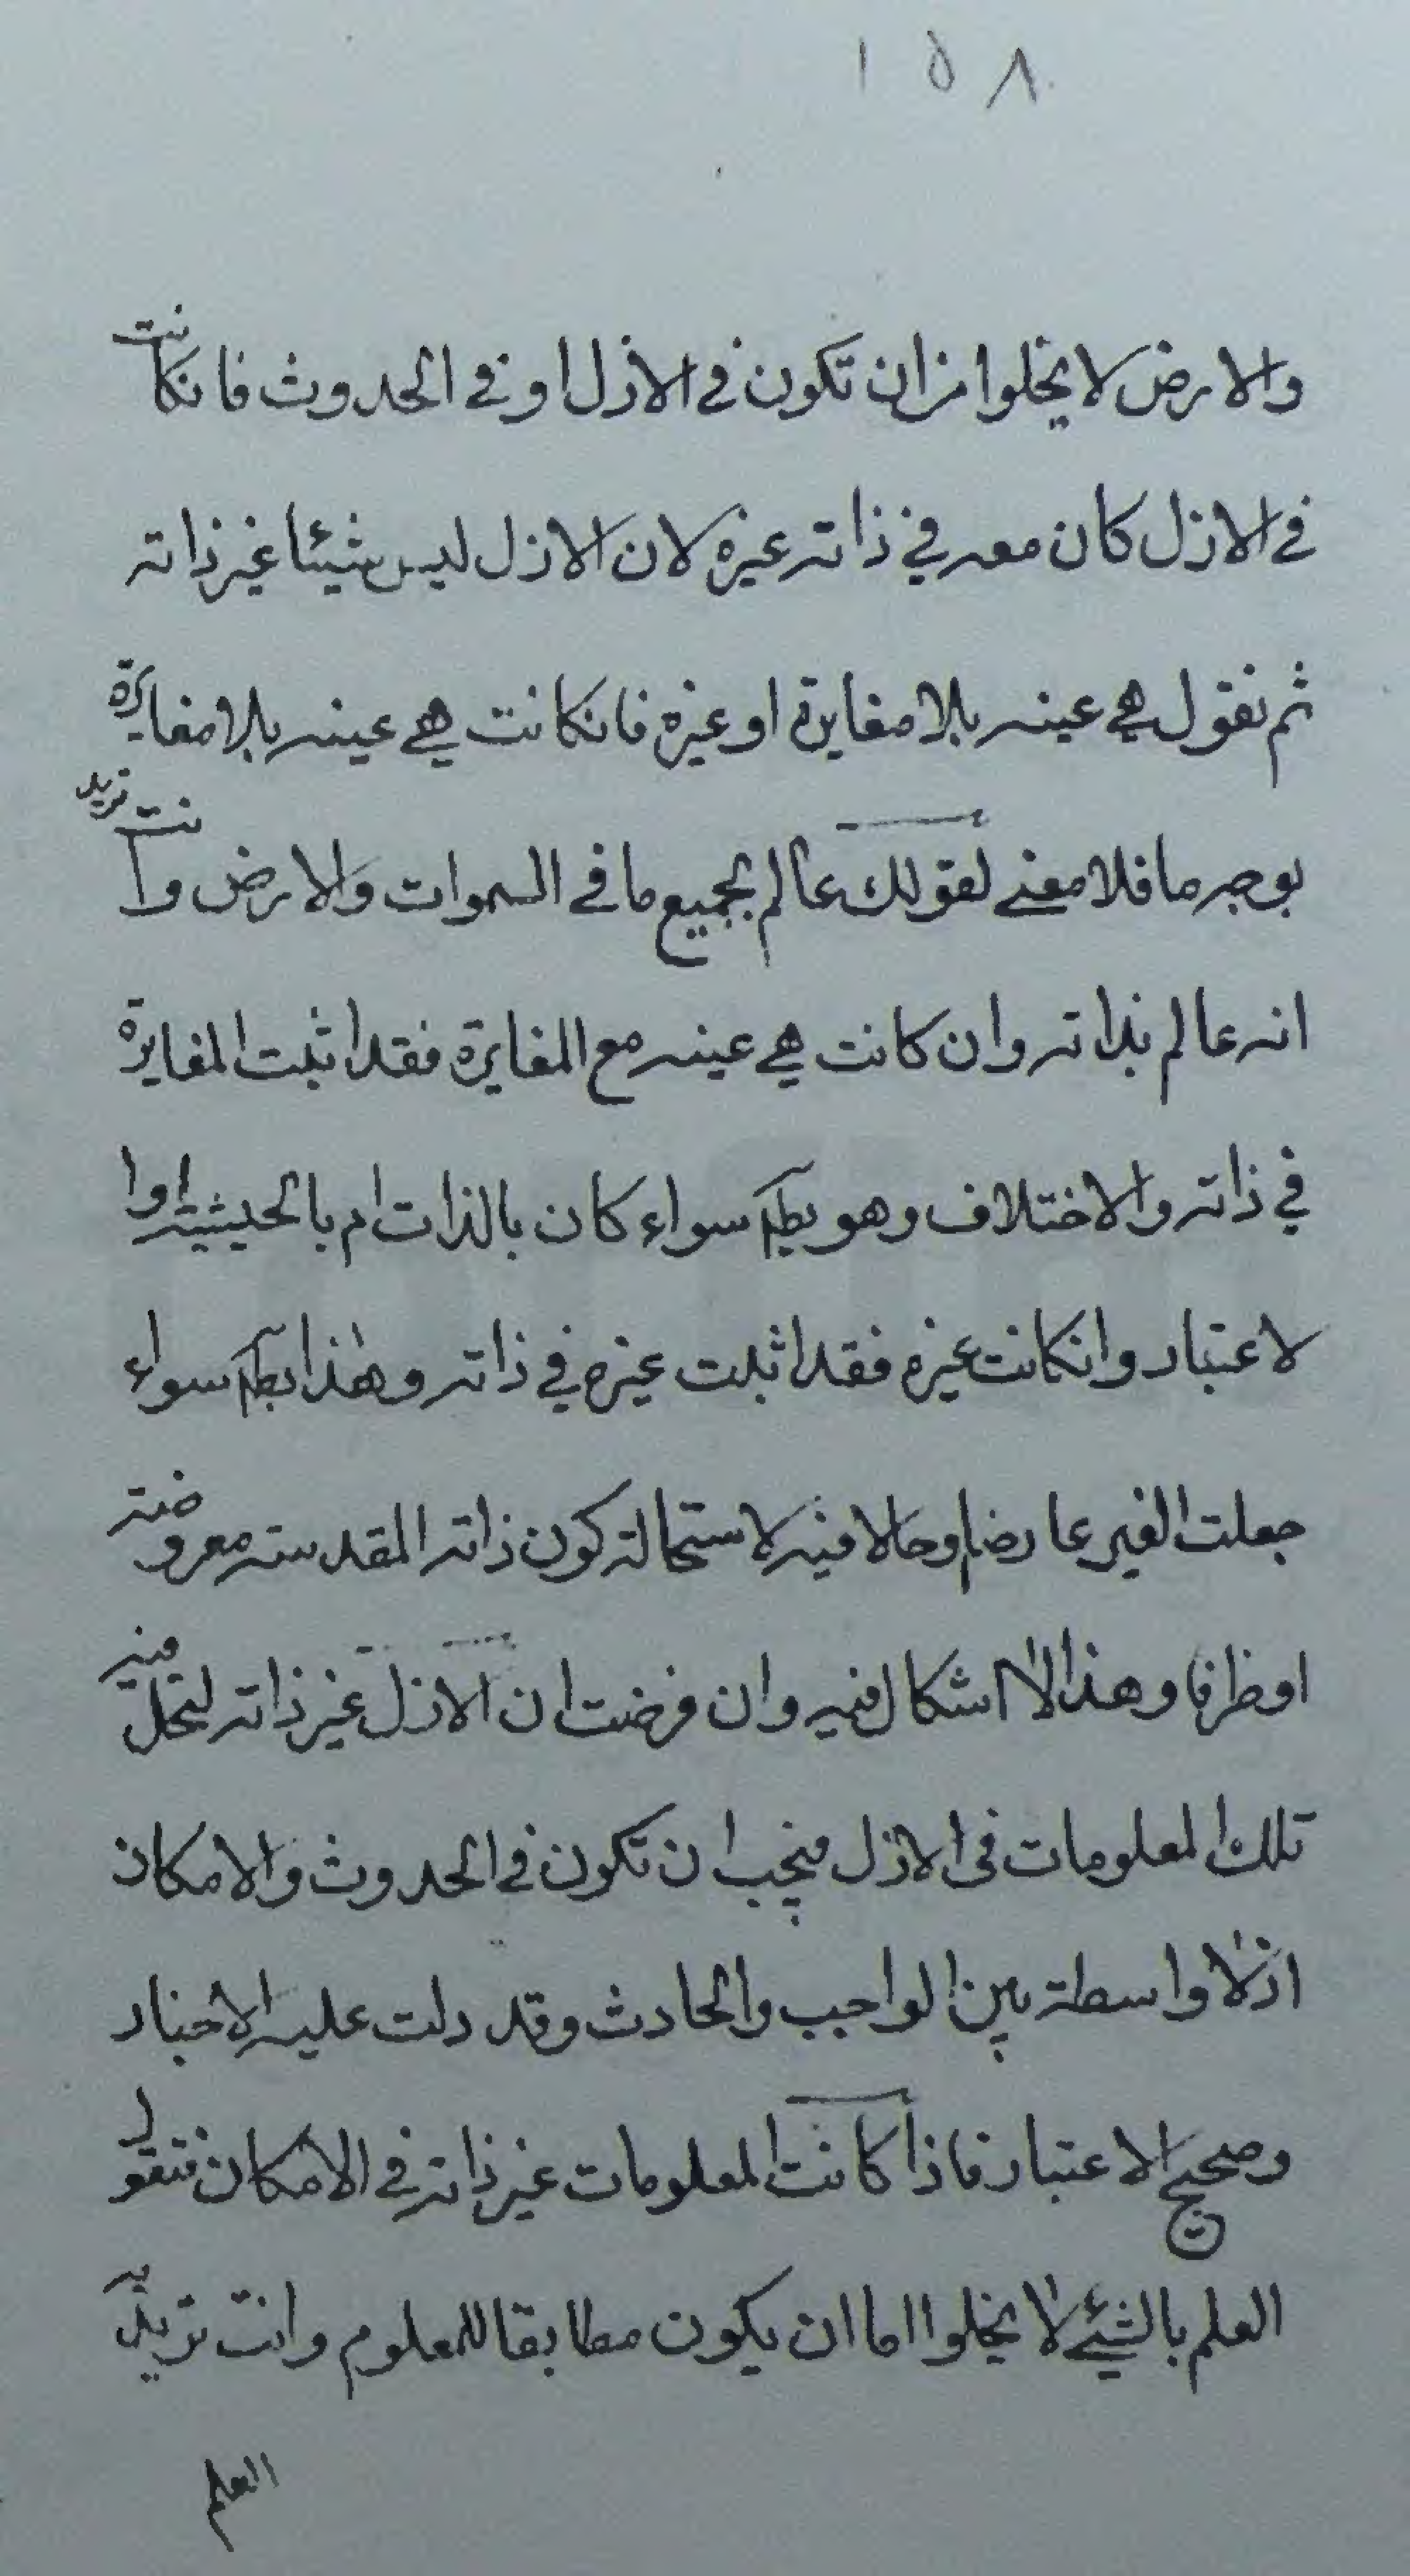 ١٥٨
والارض لا يخلوا من ان تكون في الازل او في الحدوث فانكانت
في الازل كان معه في ذاته غيره لان الازل ليس شيئا غير ذاته
ثم نقول هي عينه بلا مغايرة او غيره فانكانت هي عينه بلا مغايرة
بوجه ما فلا معنى لقولك عالم بجميع ما في السموات والارض وانت تريد
انه عالم بذاته وان كانت هي عينه مع المغايرة فقد اثبت المغايرة
في ذاته والاختلاف وهو بط سواء كان بالذات ام بالحيثية او ا
لاعتبار وانكانت غيره فقد اثبت غيره في ذاته وهذا بط سواء
جعلت الغير عارضا او حالا فيه لاستحالة كون ذاته المقدسة معروضة
او ظرفا وهذا لا اشكال فيه وان فرضت ان الازل غير ذاته لتحل فيه
تلك المعلومات في الازل فيجب ان تكون في الحدوث والامكان
اذ لا واسطة بين الواجب والحادث وقد دلت عليه الاخبار
وصحيح الاعتبار فاذا كانت المعلومات غير ذاته في الامكان فنقول
العلم بالشيء لا يخلوا اما ان يكون مطابقا للمعلوم وانت تريد به
العلم